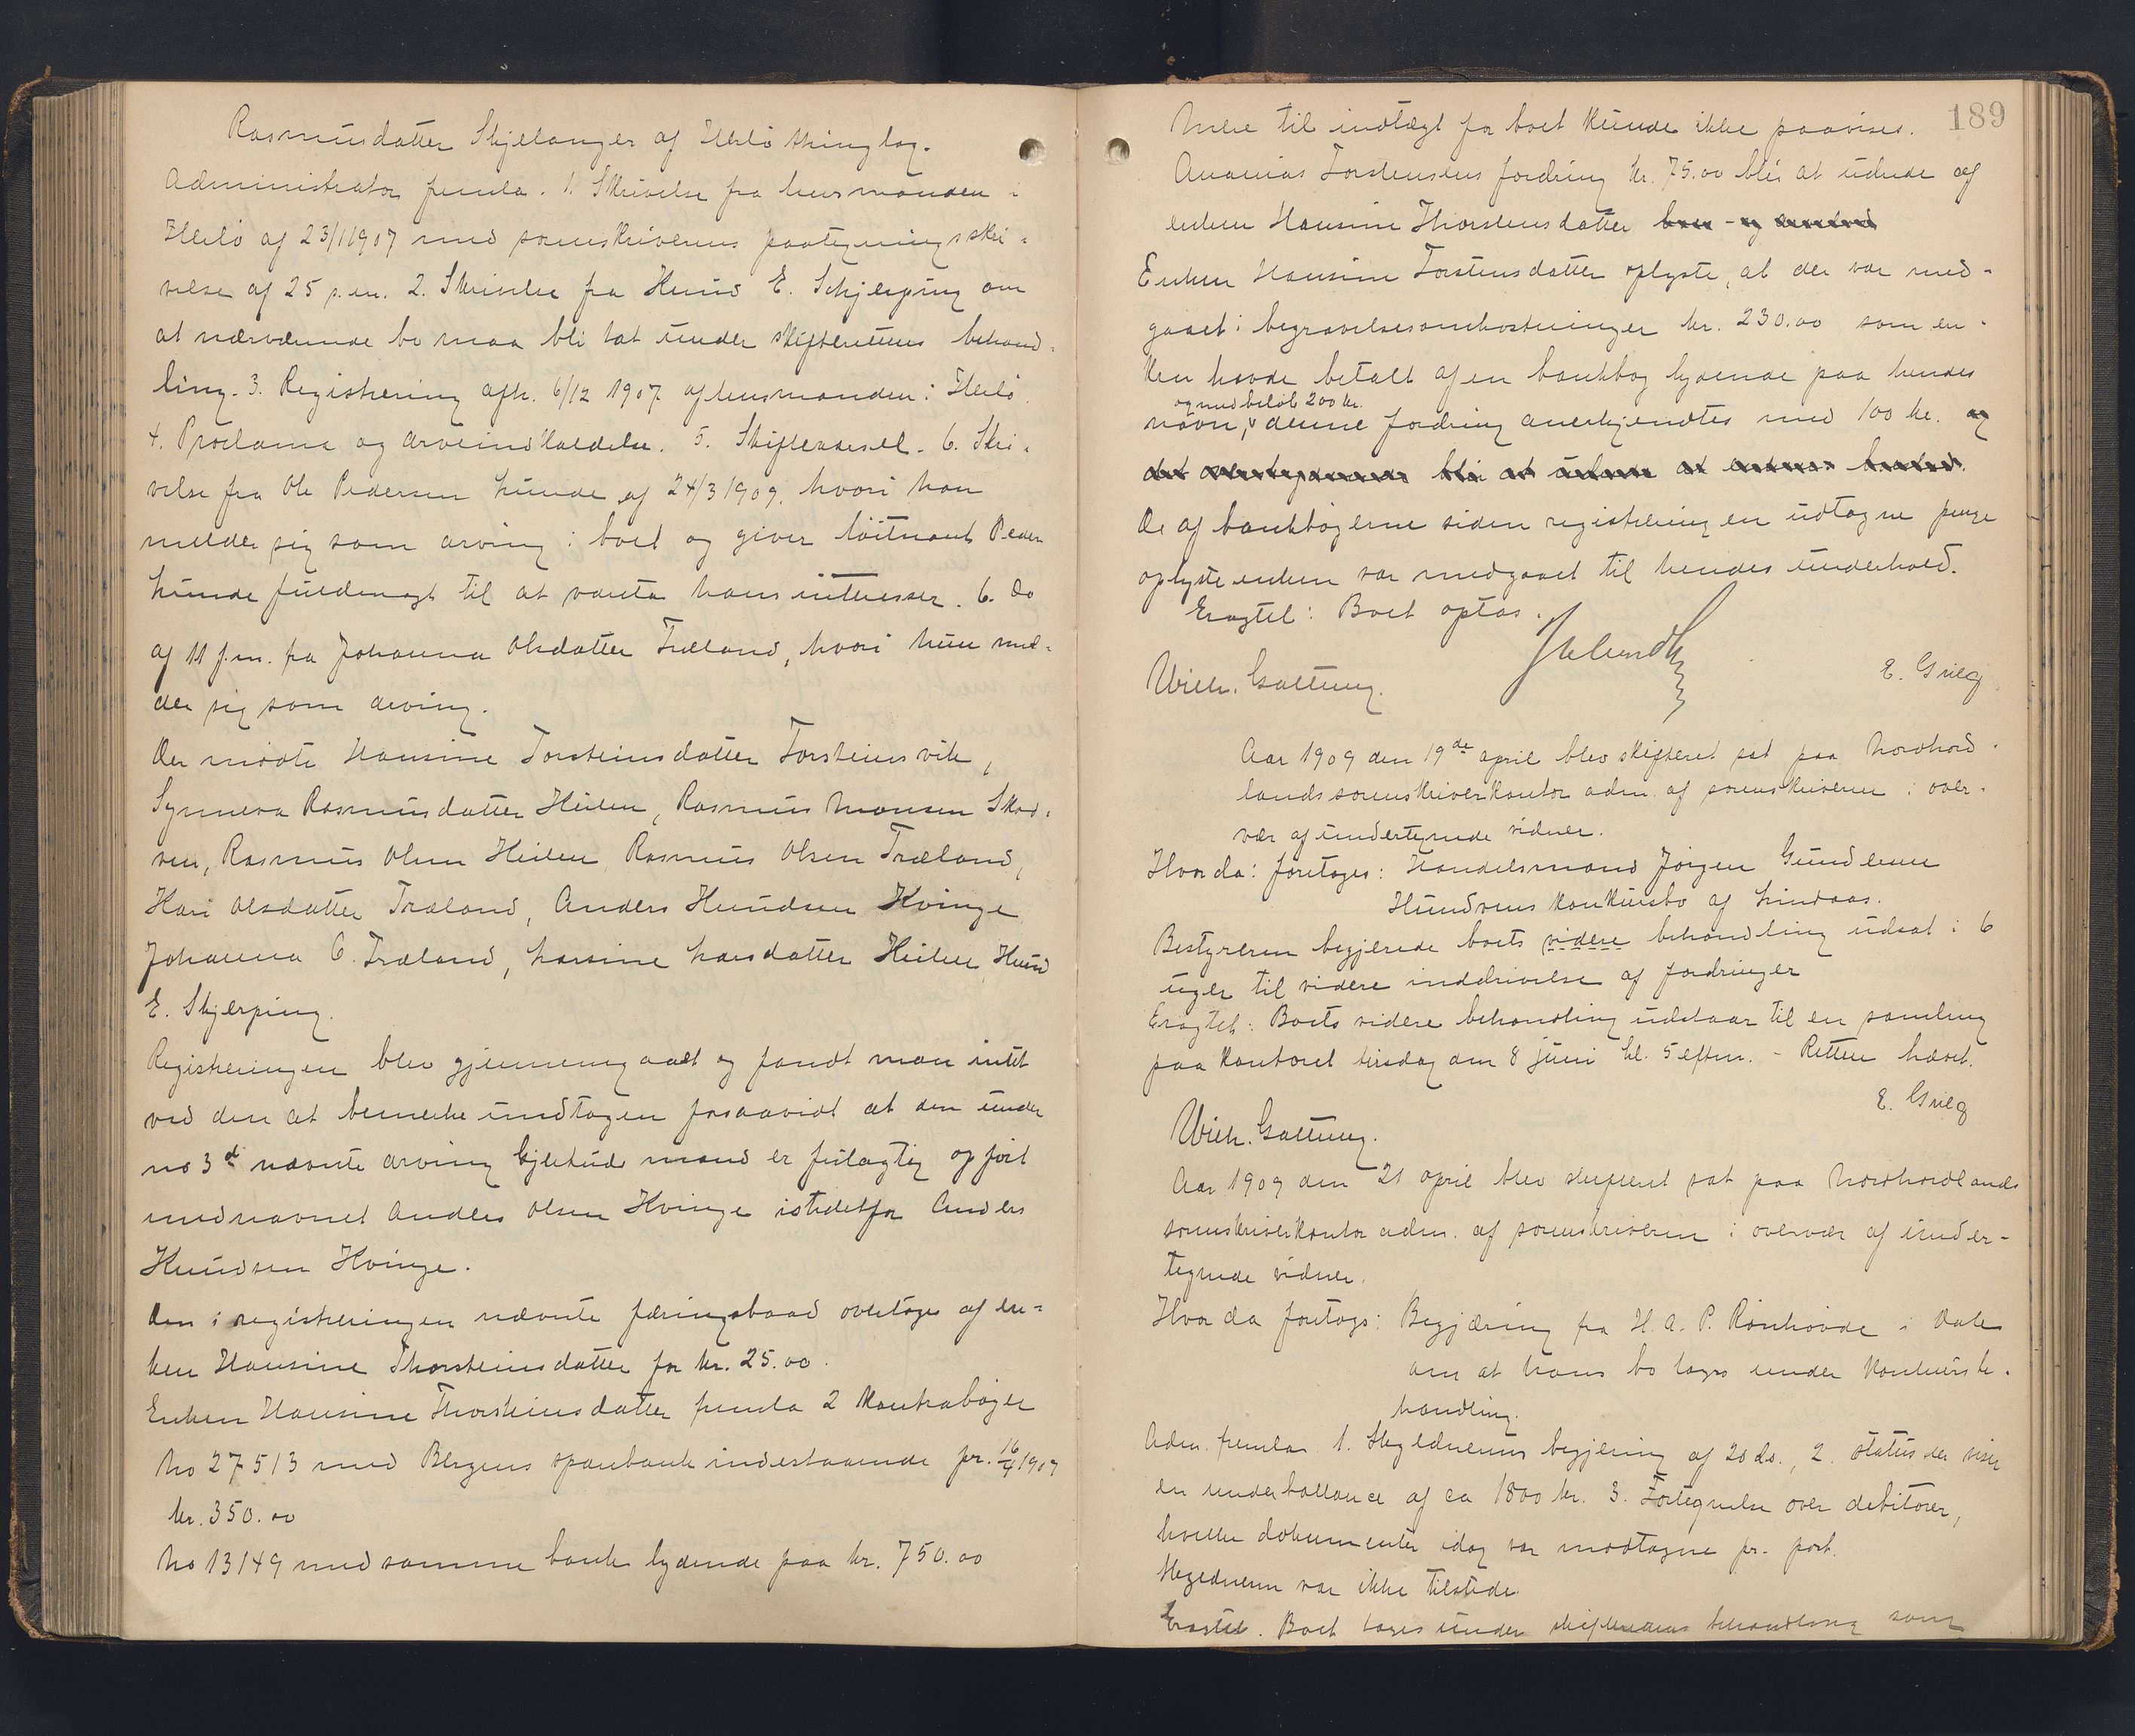 Rasmusdatter Skjelanger af Herlö thinglag.
Administrator fremla. 1. Skrivelse fra lensmanden i
Herlö af 23/1 1907 med sorenskriverens paategningsskri-
velse af 25 s.m. 2. Skrivelse fra Knud E. Schjerping om
at nærværende bo maa bli tat under skifterettens behand-
ling. 3. Registrering afh. 6/12 1907 af lensmanden i Herlö.
4. Proclama og arveindkaldelse. 5. Skifteseddel. 6. Skri-
velse fra Ole Pedersen Lunde af 24/3 1909, hvori han
melder sig som arving i boet og giver löitnant Peder
Lunde fuldmagt til at vareta hans interesser. 6. Do
af 11 f.m. fra Johanna Olsdatter Træland, hvori hun mel-
der sig som arving.
Der mødte Hansine Torsteinsdatter Torsteinsvik,
Synneva Rasmusdatter Heilen, Rasmus Monsen Skod-
ven, Rasmus Olsen Heilen, Rasmus Olsen Træland,
Kari Olsdatter Træland, Anders Knudsen Kvinge
Johanna O. Træland, Larsine Larsdatter Heilen, Knud
E. Skjerping.
Registreringen blev gjennemgaaet og fandt man intet
ved den at bemerke undtagen forsaavidt at den under
no 3 d nævnte arving mand er feilagtig opført
med navnet Anders Olsen Kvinge istedetfor Anders
Knudsen Kvinge.
Den i registreringen nævnte færingsbaad overtages af en-
ken Hansine Thorsteinsdatter for kr. 25.00.
Enken Hansine Thorsteinsdatter fremla 2 kontrabøger
No 27513 med Bergens sparebank indestaaende pr. 16/4 1909
kr. 350.00
No 13149 med samme bank lydende paa kr. 750.00
189
Mere til indtægt for boet kunde ikke paavises.
Ananias Torstensens fordring kr. 75.00 blir at udrede af
enken Hansine Thorstensdatter
Enken Hansine Torstensdatter oplyste, at der var med-
gaaet i begravelsesomkostninger kr. 230.00 som en-
ken havde betalt af en bankbog lydende paa hendes
og med beløb 200 kr.
navn, denne fordring anerkjendtes med 100 kr. og
det overstigende blir at udrede af enkens
De af bankbøgerne siden registreringen udtagne penge
oplyste enken var medgaaet til hendes underhold.
Eragtet: Boet optas.
Wilh. Galtung.
E. Grieg
Aar 1909 den 19de april blev skifteret sat paa Nordhord-
lands sorenskriverkontor adm. af sorenskriveren i over-
vær af undertegnede vidner.
Hvorda: foretoges: Handelsmand Jörgen Gundersen
Hundvens konkursbo af Lindaas.
Bestyreren begjerede boets videre behandling udsat i 6
uger til videre inddrivelse af fordringer
Eragtet: Boets videre behandling udstaar til en samling
paa kontoret tirsdag den 8 juni kl. 5 efterm. - Retten hævet.
E. Grieg
Wilh. Galtung.
Aar 1909 den 21 april blev skifteret sat paa Nordhordlands
sorenskriverkontor adm. af sorenskriveren i overvær af under-
tegnede vidner.
Hvorda foretogs: Begjæring fra H. A. P. Rönhovde i Dale
om at hans bo tages under konkursbe-
handling.
Adm. fremla 1. Skyldnerens begjering af 20 ds., 2. status der viser
en underballance af ca 1800 kr. 3. Fortegnelse over debitorer,
hvilke dokumenter idag var modtagne pr. post.
Skyldneren var ikke tilstede.
Eragtet. Boet tages under skifterettens behandling som